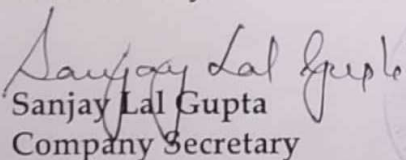 Sanjay Lal Gupta
Sanjay Lal Gupta
Company Secretary